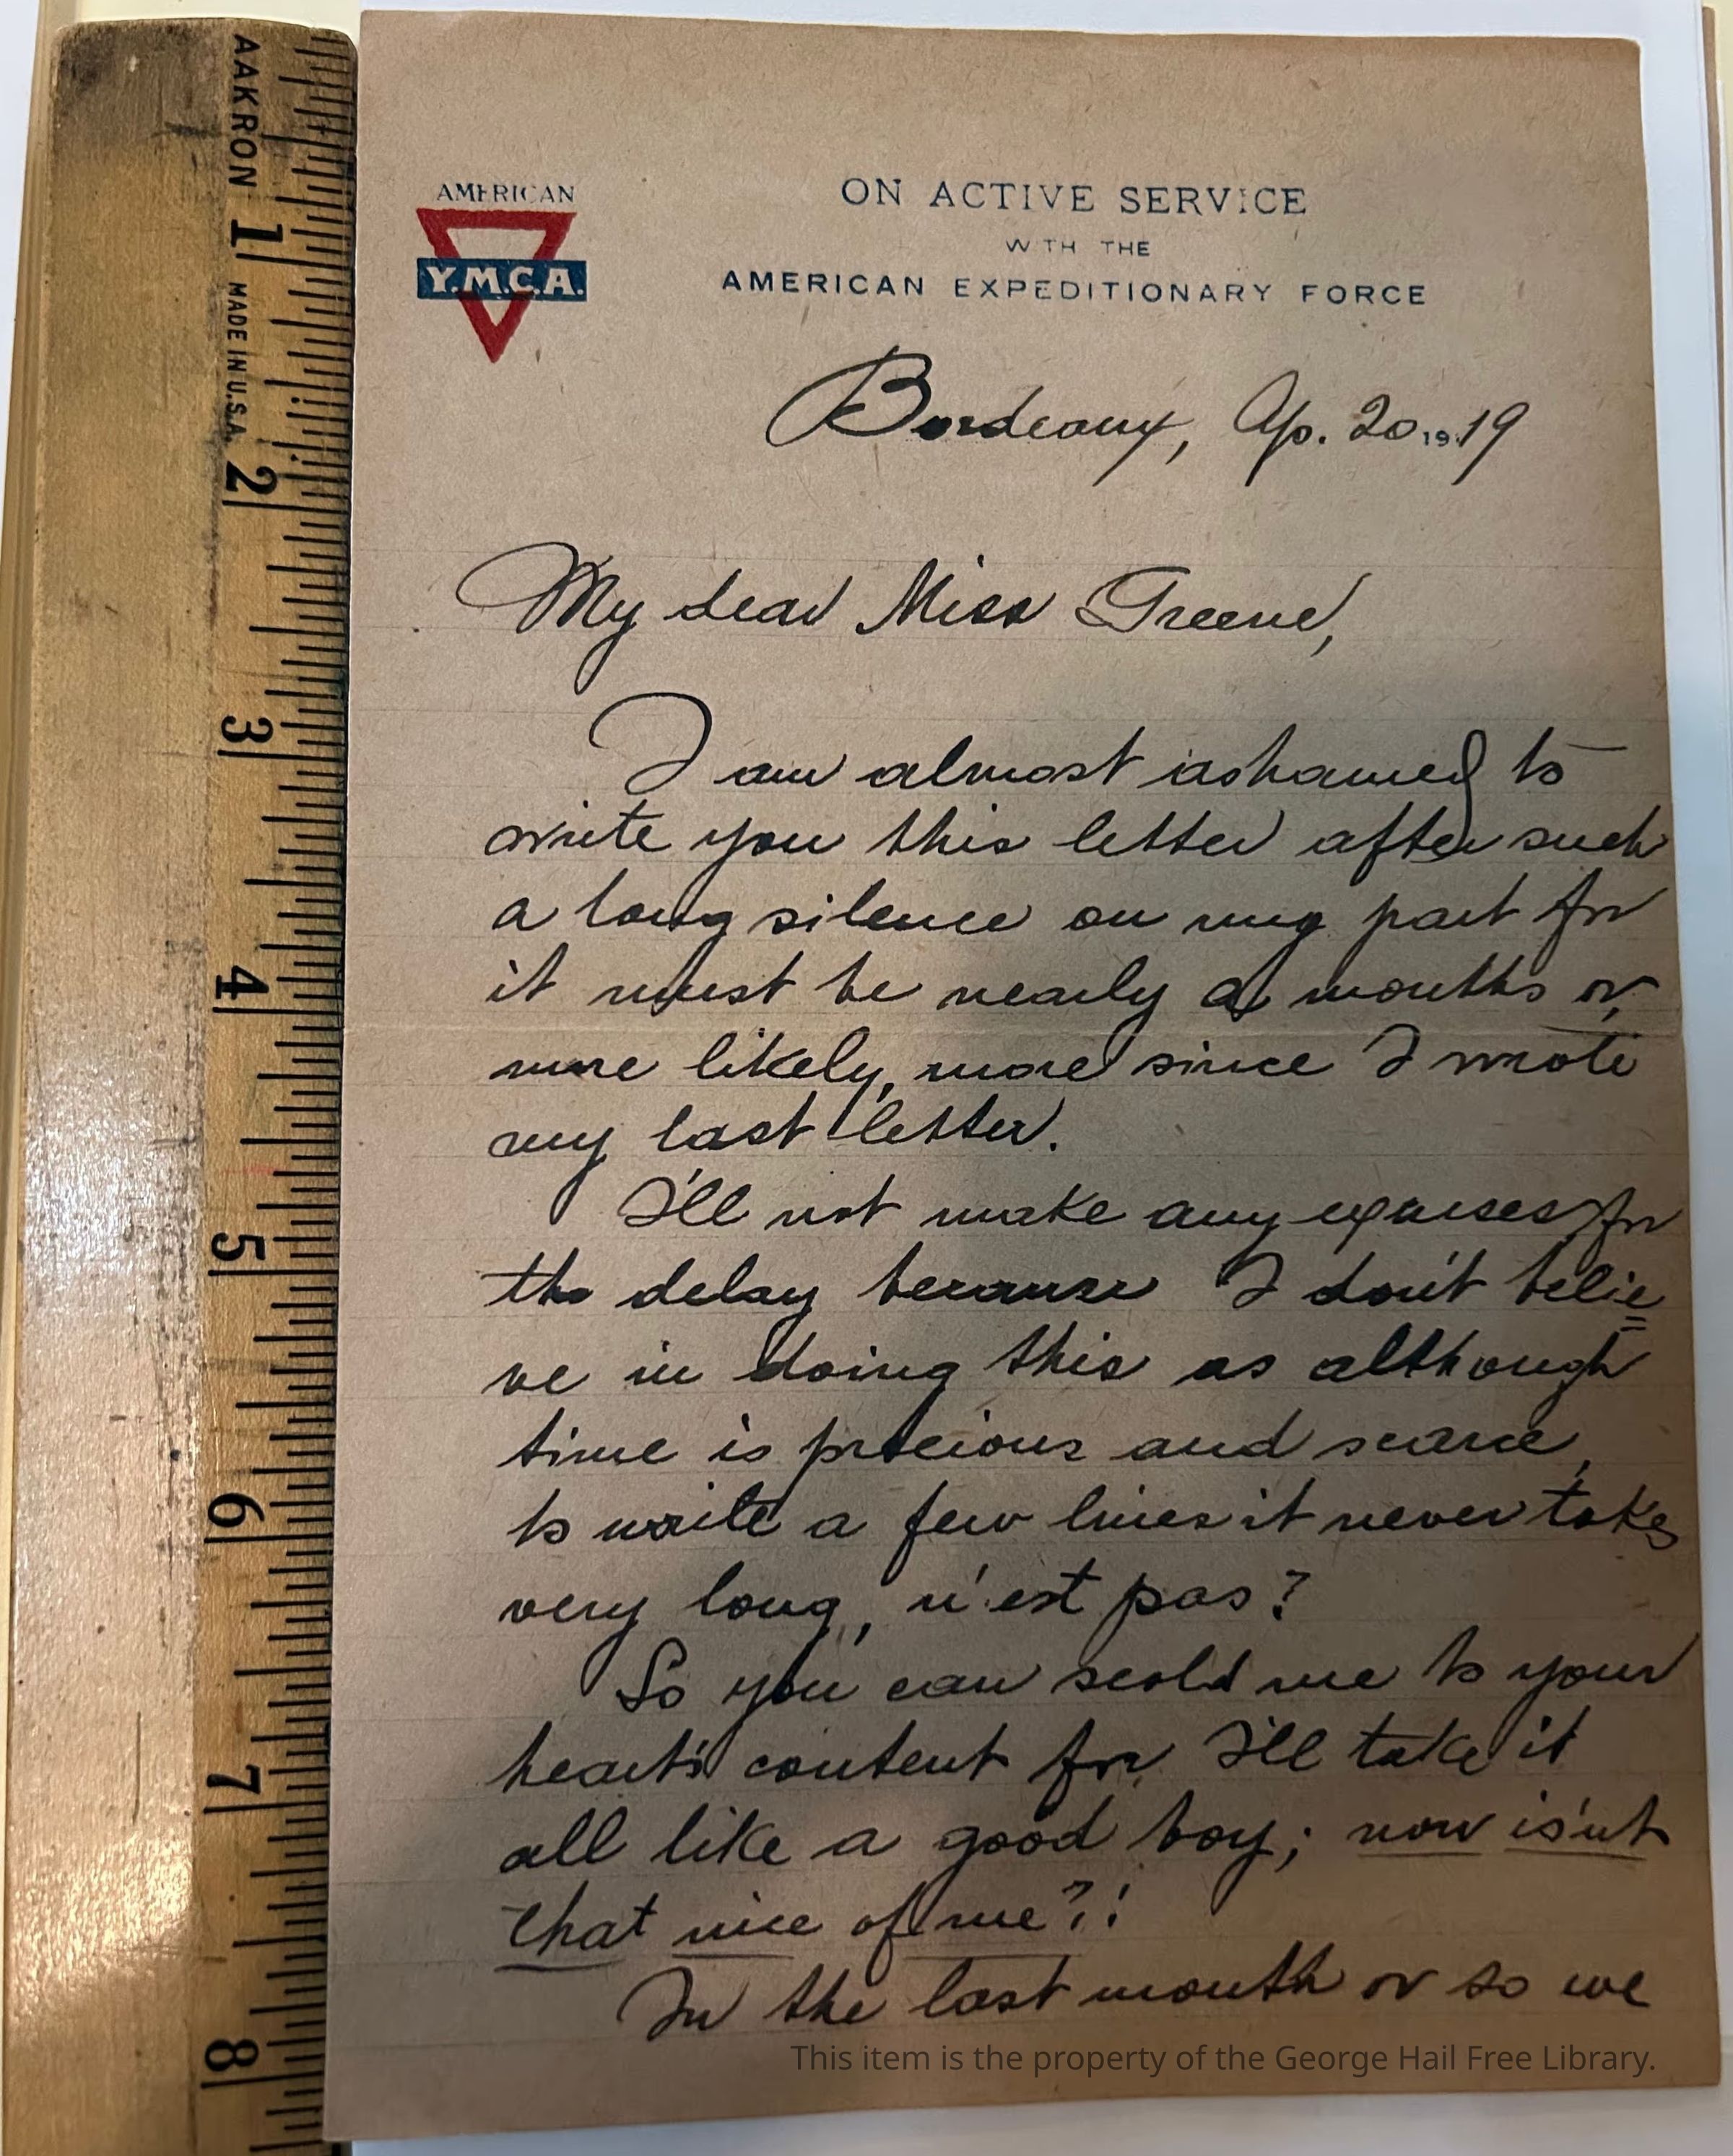 AAKRON
1
MADE IN U.S.A.
2
3
4
5
6
7
8
AMERICAN
Y.M.C.A.
ON ACTIVE SERVICE
WITH THE
AMERICAN EXPEDITIONARY FORCE
Bordeaux, Ap. 20, 1919
My dear Miss Greene,
I am almost ashamed to
write you this letter after such
a long silence on my part for
it must be nearly a months or,
more likely, more since I wrote
my last letter.
I'll not make any excuses for
the delay because I don't belie=
ve in doing this as although
time is precious and scarce,
to write a few lines it never takes
very long, n'est pas?
So you can scold me to your
heart's content for I'll take it
all like a good boy; now is'nt
that nice of me?!
In the last month or so we
This item is the property of the George Hail Free Library.